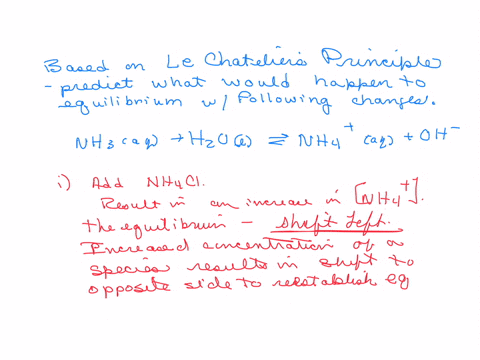 Based on Le Chatelier's Principle
- predict what would happen to
equilibrium w/ following changes.
NH3(aq) → H2O(l) ⇌ NH4+ (aq) + OH-
i) Add NH4Cl.
Result in an increase in [NH4+].
the equilibrium - shift left.
Increased concentration of a
species results in shift to
opposite side to reestablish eq